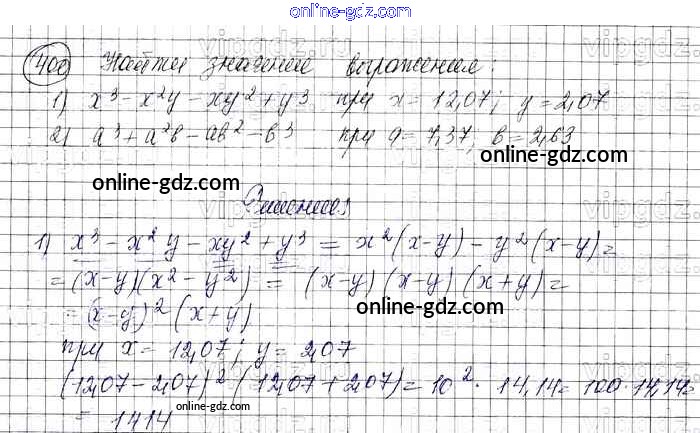 online-gdz.com
vipgdz.ru
400 Найти значение выражения:
1) x³ - x²y - xy² + y³ при x = 12,07; y = 2,07
2) a³ + a²b - ab² - b³ при a = 7,37; b = 2,63
online-gdz.com
Решение:
1) x³ - x²y - xy² + y³ = x²(x-y) - y²(x-y) =
= (x-y)(x² - y²) = (x-y)(x-y)(x+y) =
online-gdz.com
= (x-y)²(x+y)
при x = 12,07; y = 2,07
(12,07-2,07)²(12,07+2,07) = 10² · 14,14 = 100 · 14,14 =
= 1414
online-gdz.com